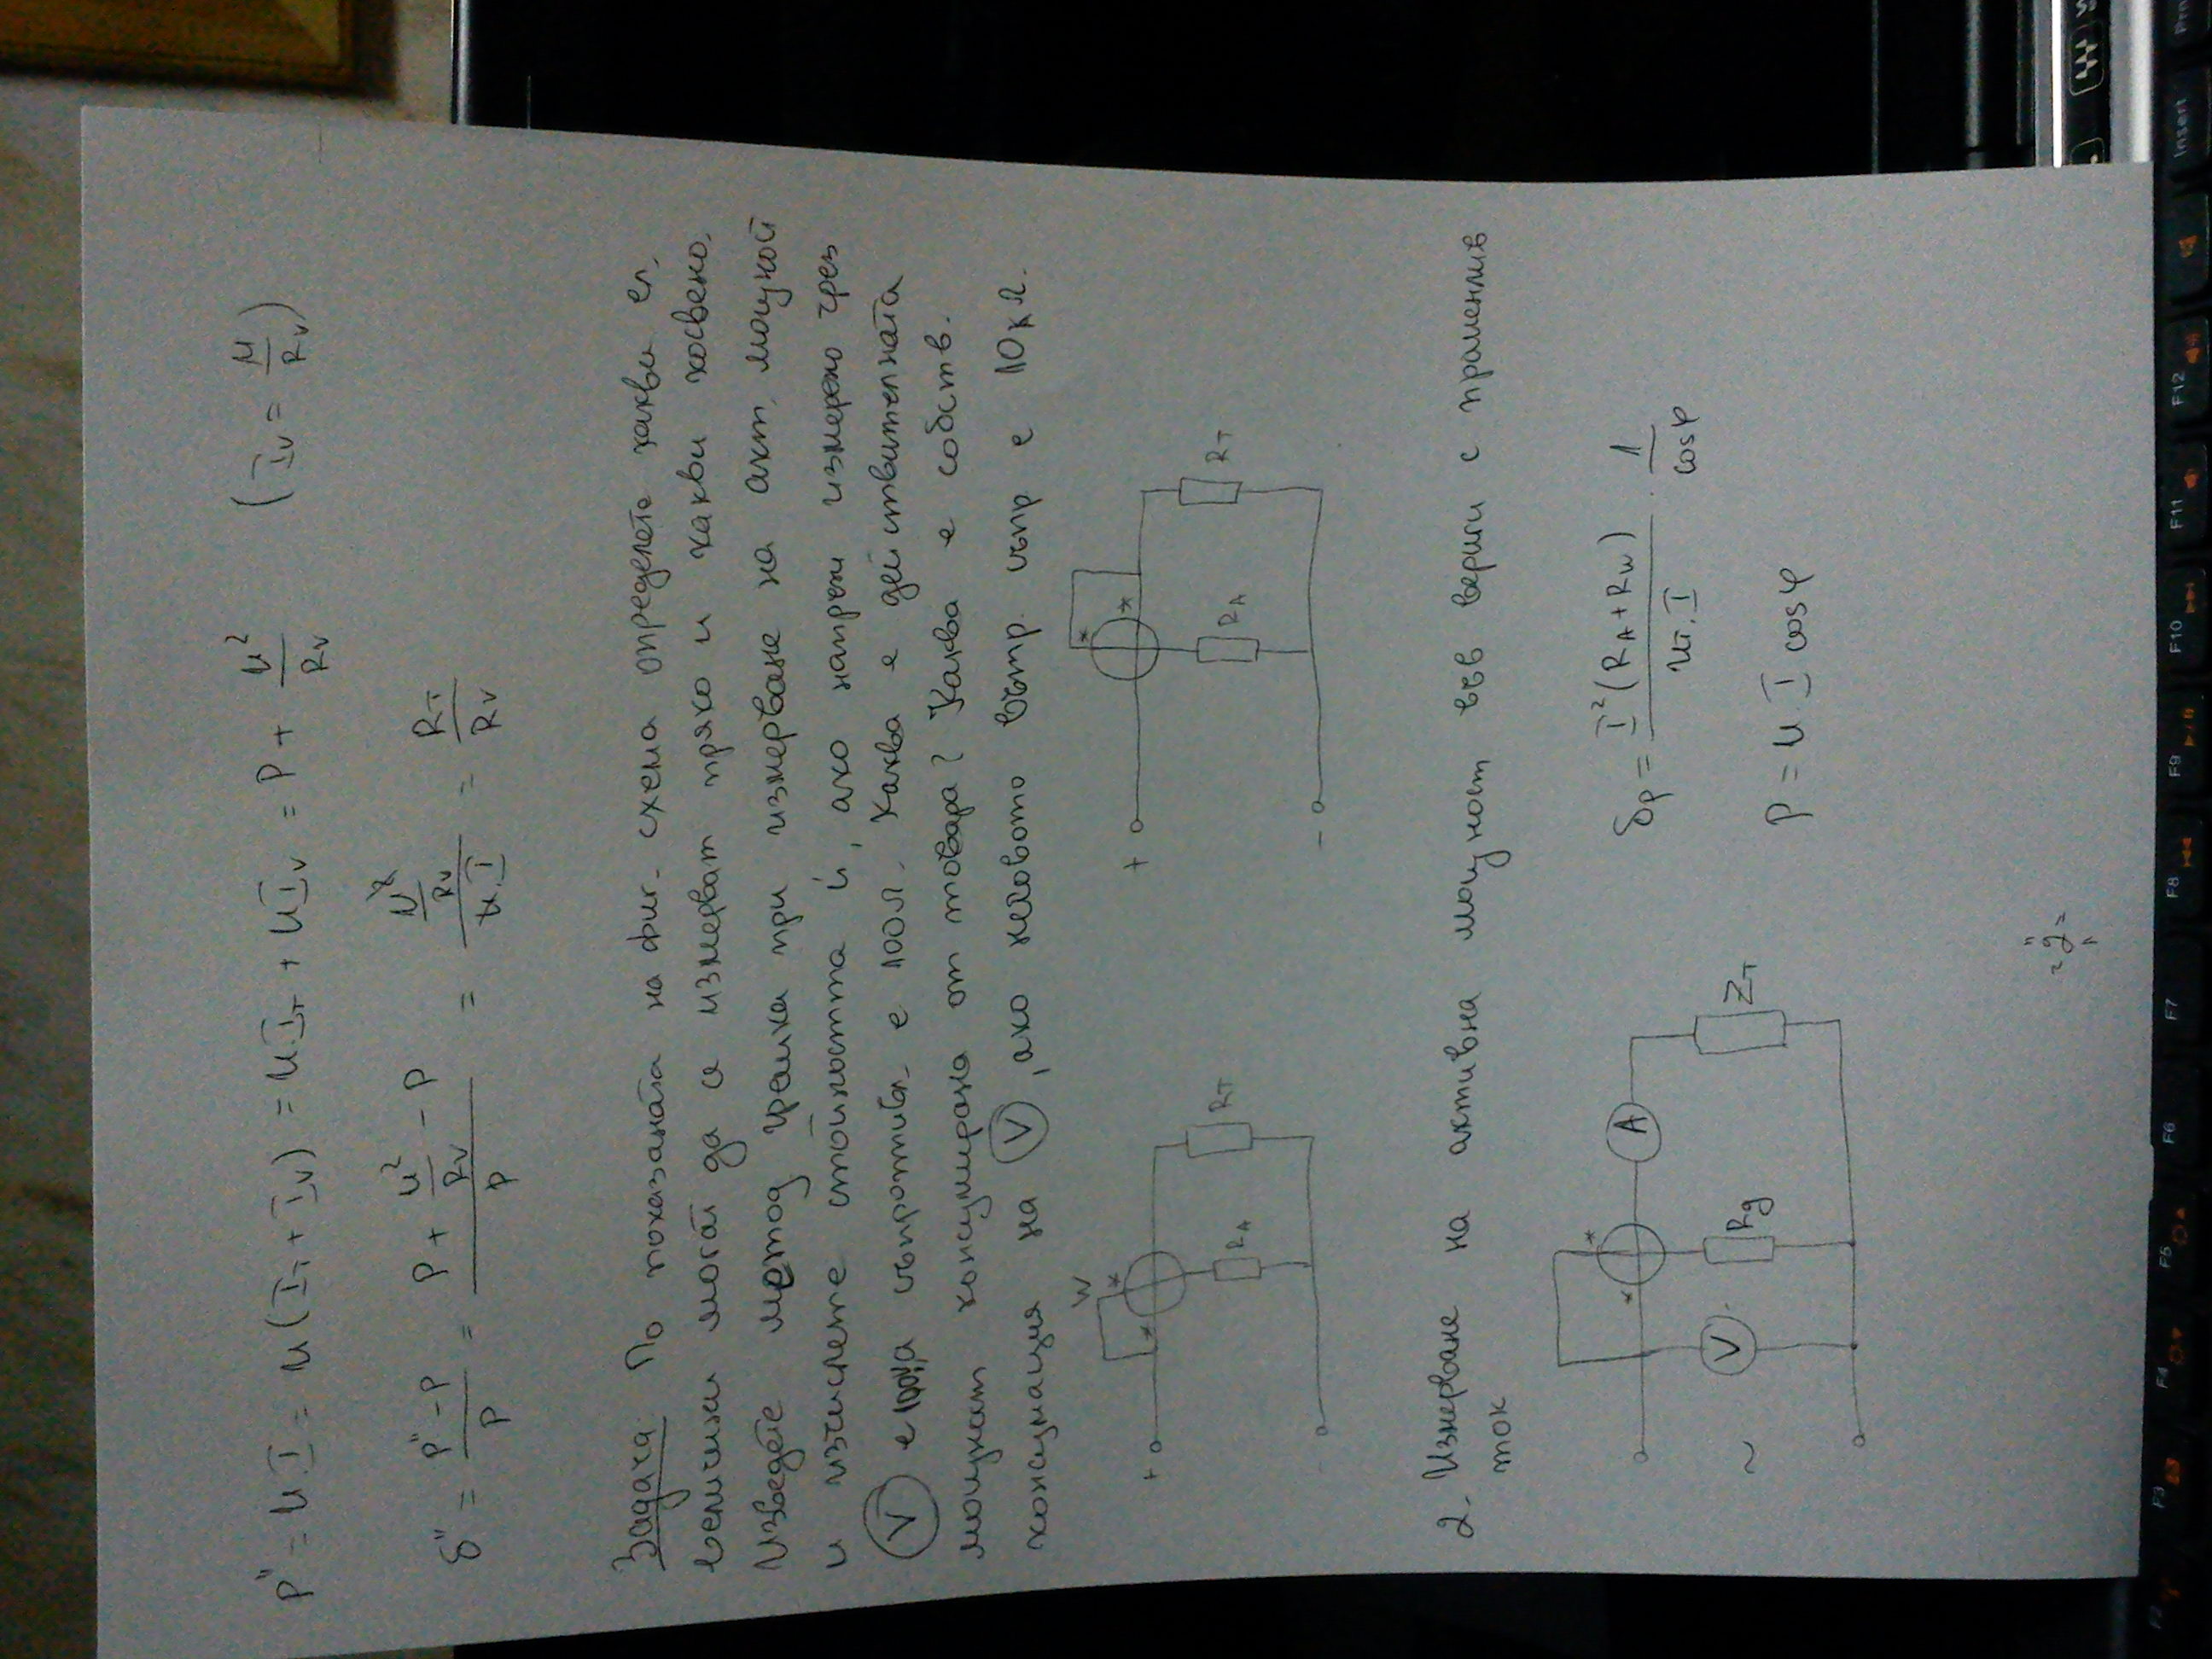 P" = U.I = U(I_T + I_V) = U.I_T + U I_V = P + U²/R_V (I_V = U/R_V)
δ" = (P" - P)/P = (P + U²/R_V - P)/P = (U²/R_V)/(U.I) = R_T/R_V
Задача: По показаната на фиг. схема определете какви ел.
величини могат да се измерват пряко и какви косвено.
Изведете метод грешка при измерване на акт. мощност
и изчислете стойността ѝ, ако напреж измерено чрез
(V) е 100 съпротивл. е 100Ω. Каква е действителната
мощност консумирана от товара? Каква е собств.
консумация на (V), ако неговото вътр. съпр е 10кΩ.
W
* *
+ R_A R_T
* *
+ R_A R_T
-
2. Измерване на активна мощност във вериги с променлив
ток
* *
~ V A R_g Z_T
δ_P = I²(R_A + R_W)/(U_T.I) . 1/cosφ
P = U I cosφ
F2 F3 F4 F5 F6 F7 F8 F9 F10 F11 F12 Insert